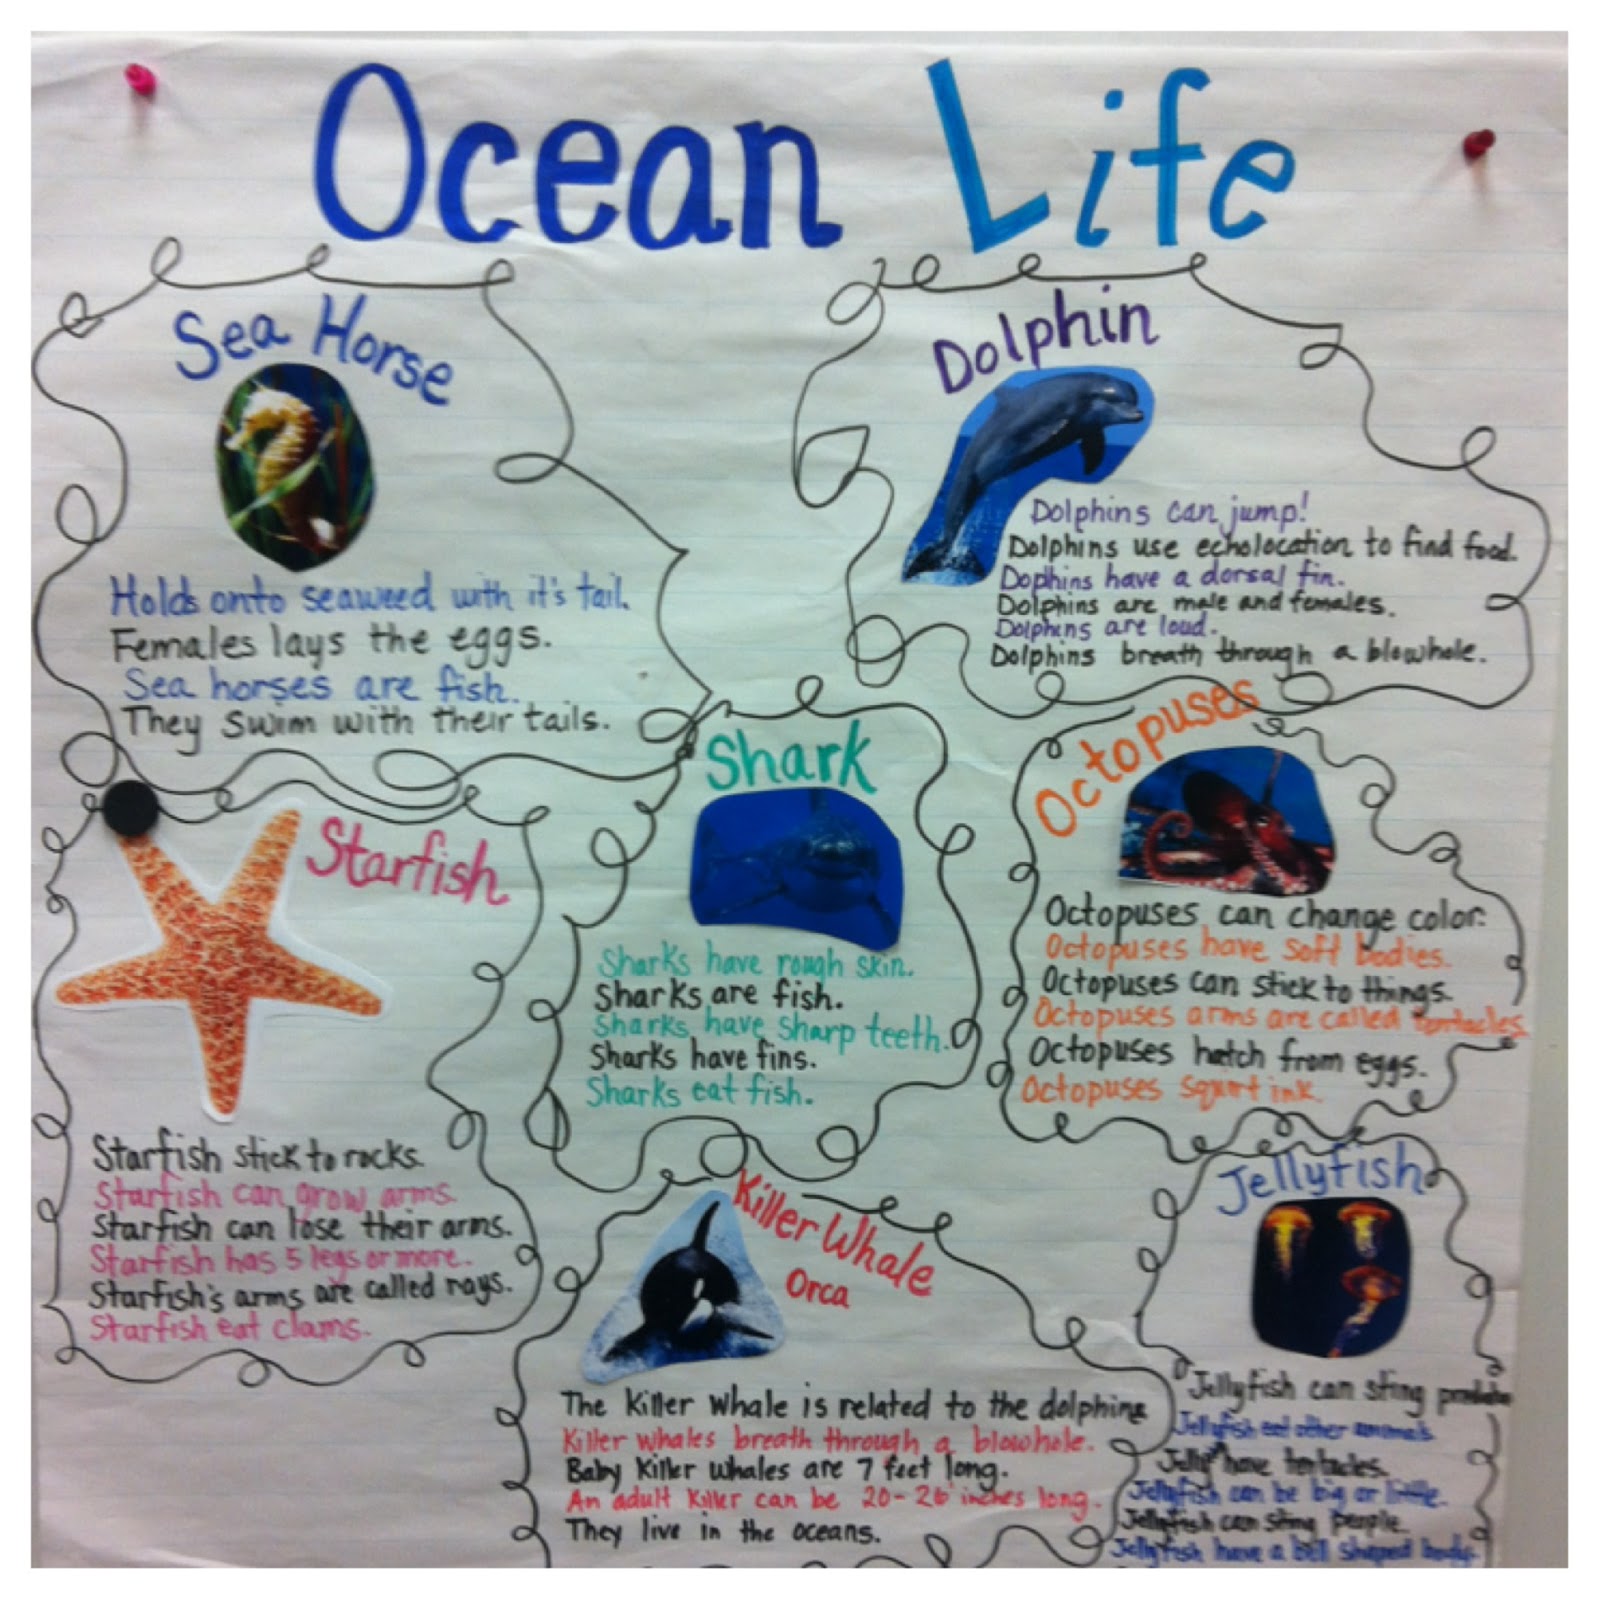 Ocean Life
Sea Horse
Holds onto seaweed with it's tail.
Females lays the eggs.
Sea horses are fish.
They swim with their tails.
Dolphin
Dolphins can jump!
Dolphins use echolocation to find food.
Dophins have a dorsal fin.
Dolphins are male and females.
Dolphins are loud.
Dolphins breath through a blowhole.
Starfish
Starfish stick to rocks.
Starfish can grow arms.
Starfish can lose their arms.
Starfish has 5 legs or more.
Starfish's arms are called rays.
Starfish eat clams.
Shark
Sharks have rough skin.
Sharks are fish.
Sharks have sharp teeth.
Sharks have fins.
Sharks eat fish.
Octopuses
Octopuses can change color.
Octopuses have soft bodies.
Octopuses can stick to things.
Octopuses arms are called tentacles.
Octopuses hatch from eggs.
Octopuses squirt ink.
Killer Whale
Orca
The Killer Whale is related to the dolphins
Killer whales breath through a blowhole.
Baby Killer whales are 7 feet long.
An adult Killer can be 20-26 inches long.
They live in the oceans.
Jellyfish
Jellyfish can sting
Jellyfish eat other animals
Jelly have tentacles.
Jellyfish can be big or little.
Jellyfish can sting people.
Jellyfish have a bell shaped body.